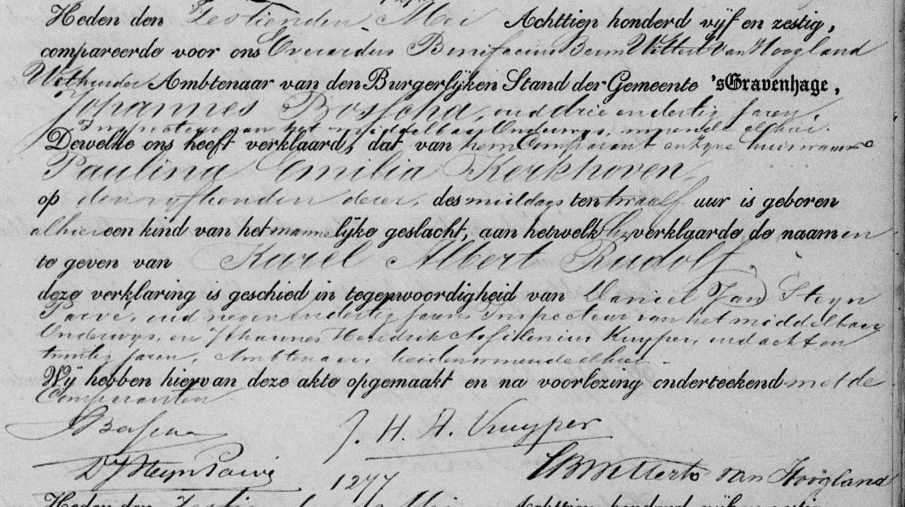 Heden den Zestienden Mei Achttien honderd vijf en zestig,
compareerde voor ons Everardus Bonifacius Wittert Van Hoogland
Wethouder Ambtenaar van den Burgerlijken Stand der Gemeente 'sGravenhage,
Johannes Bosscha, oud drie en dertig jaren,
Inspecteur van het middelbaar Onderwijs, wonende alhier.
Dewelke ons heeft verklaard, dat van hem Comparant en zijne huisvrouw
Paulina Emilia Kerkhoven,
op den vyftienden dezer, des middags ten twaalf uur is geboren
alhier een kind van het mannelijke geslacht, aan hetwelk hij verklaarde de naamen
te geven van Karel Albert Rudolf,
deze verklaring is geschied in tegenwoordigheid van Daniel Jan Steyn
Parvé, oud negen en dertig jaren Inspecteur van het middelbaar
Onderwijs, en Johannes Hendrik Kuyper, oud acht en
twintig jaren, Ambtenaar, beiden wonende alhier.
Wij hebben hiervan deze akte opgemaakt en na voorlezing onderteekend met de
Comparanten
J Bosscha J. H. A. Kuyper
D J Steyn Parvé 1277 Wittert van Hoogland
Heden den Zestienden Mei Achttien honderd vijf en zestig